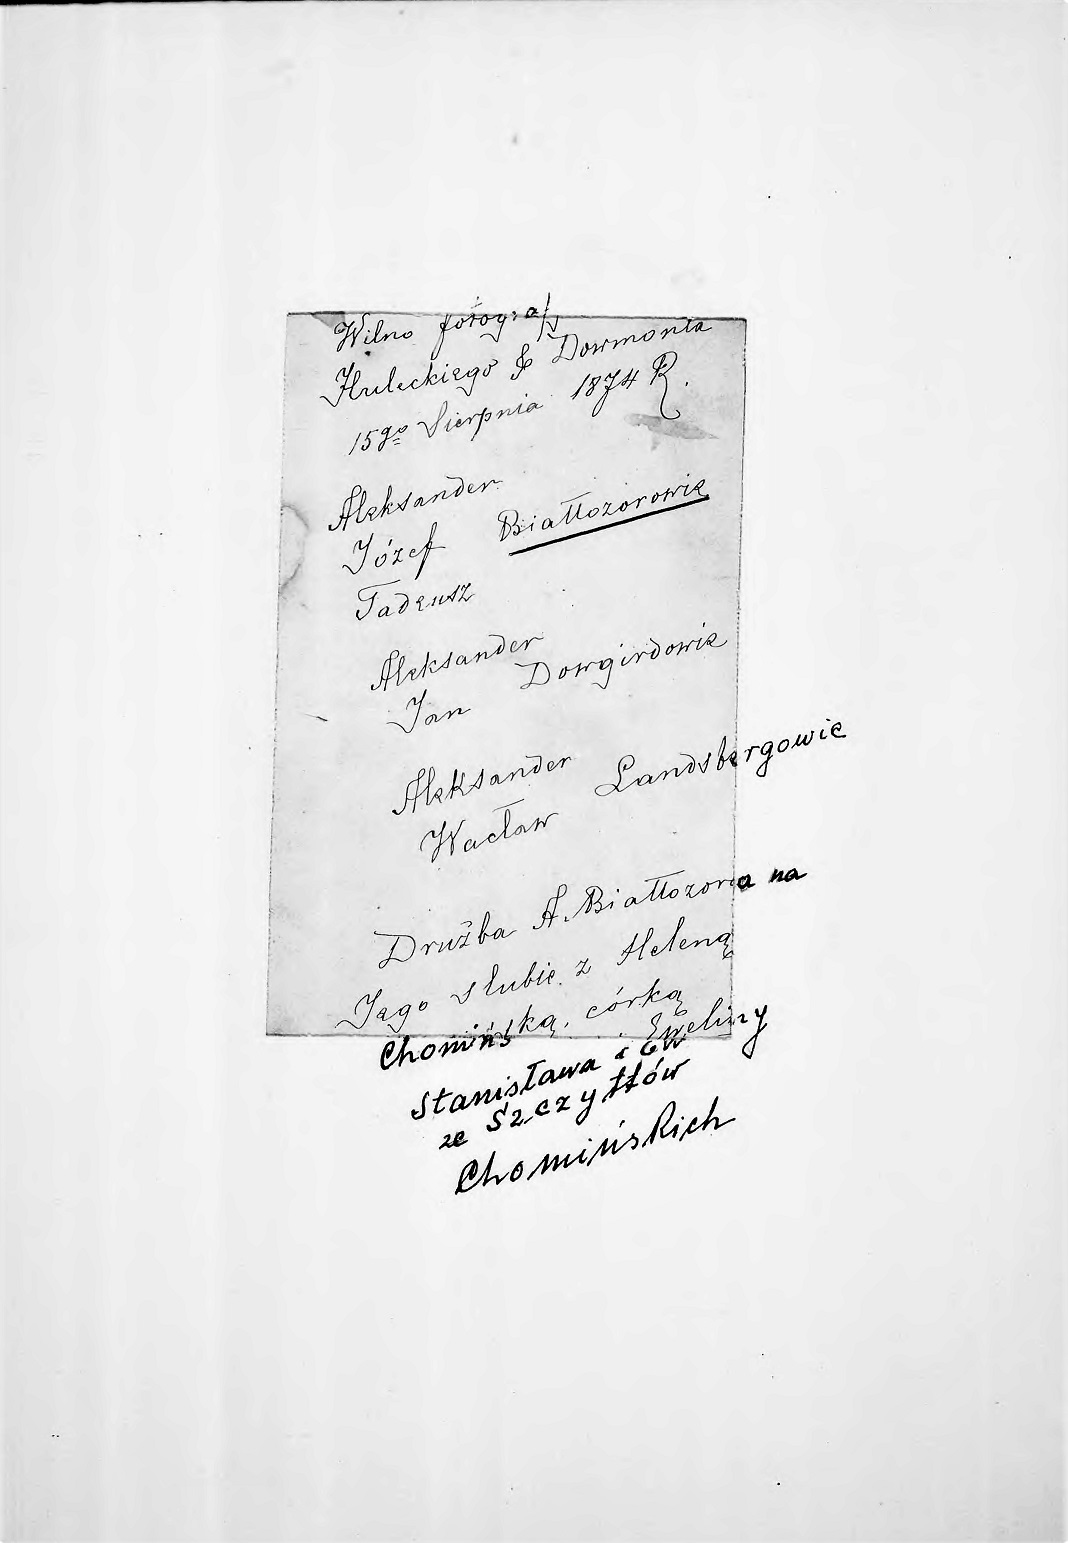 Wilno fotograf
Huleckiego & Dowmonta
15go Sierpnia 1874 R.
Aleksander
Józef Białłozorowie
Tadeusz
Aleksander
Jan Dowgirdowie
Aleksander
Wacław Landsbergowie
Drużba A. Białłozora na
Jego slubie z Heleną
Chomińską, córką
Stanisława i Eweliny
ze Szczyttów
Chomińskich